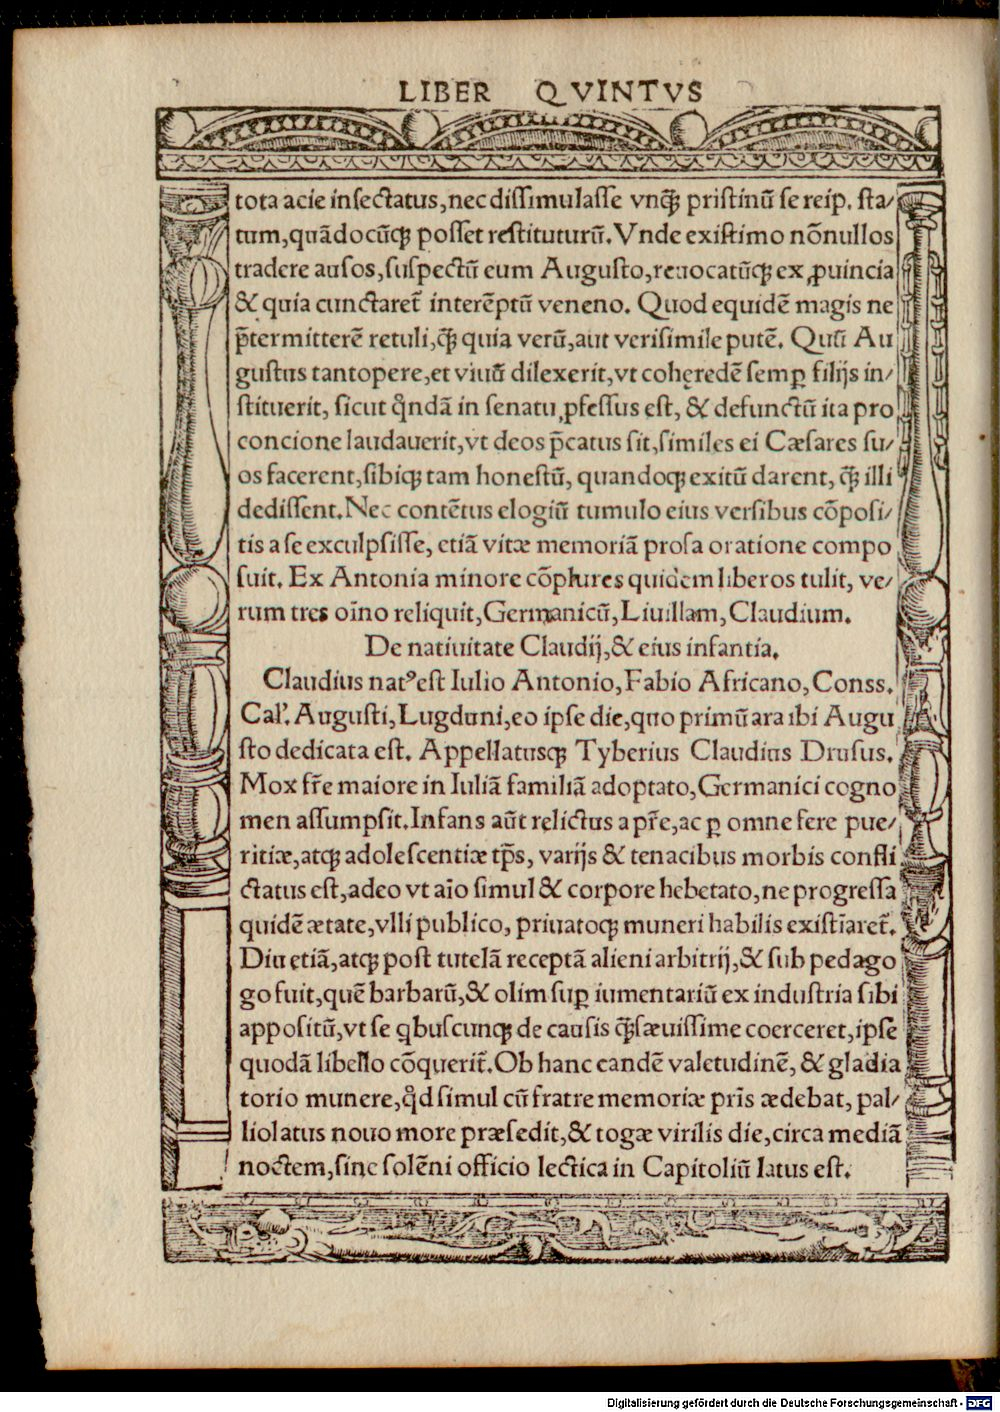 LIBER QVINTVS
tota acie insectatus, nec dissimulasse vnq̃ȝ pristinũ se reip. sta/
tum, quãdocũqꝫ posset restituturũ. Vnde existimo nõnullos
tradere ausos, suspectũ eum Augusto, reuocatũqꝫ ex ꝓuincia
& quia cunctaret̃ interẽptũ veneno. Quod equidẽ magis ne
p̃termitterẽ retuli, q̃ȝ quia verũ, aut verisimile putẽ. Quũ Au
gustus tantopere, et viuũ dilexerit, vt cohęredẽ semꝑ filijs in/
stituerit, sicut qͥndã in senatu ꝓfessus est, & defunctũ ita pro
concione laudauerit, vt deos p̃catus sit, similes ei Cæsares su/
os facerent, sibiqꝫ tam honestũ, quandoqꝫ exitũ darent, q̃ȝ illi
dedissent. Nec contẽtus elogiũ tumulo eius versibus cõposi/
tis a se exculpsisse, etiã vitæ memoriã prosa oratione compo
suit. Ex Antonia minore cõplures quidem liberos tulit, ve/
rum tres oĩno reliquit, Germanicũ, Liuillam, Claudium.
De natiuitate Claudij, & eius infantia.
Claudius natꝰ est Iulio Antonio, Fabio Africano, Conss.
Cal'. Augusti, Lugduni, eo ipse die, quo primũ ara ibi Augu
sto dedicata est. Appellatusqꝫ Tyberius Claudius Drusus.
Mox fr̃e maiore in Iuliã familiã adoptato, Germanici cogno
men assumpsit. Infans aũt relictus a pr̃e, ac ꝑ omne fere pue/
ritiæ, atqꝫ adolescentiæ tp̃s, varijs & tenacibus morbis confli
ctatus est, adeo vt aĩo simul & corpore hebetato, ne progressa
quidẽ ætate, vlli publico, priuatoqꝫ muneri habilis existĩaret̃.
Diu etiã, atqꝫ post tutelã receptã alieni arbitrij, & sub pedago
go fuit, quẽ barbarũ, & olim suꝑ iumentariũ ex industria sibi
appositũ, vt se qͥbuscunqꝫ de causis q̃ȝ sæuissime coerceret, ipse
quodã libello cõquerit̃. Ob hanc eandẽ valetudinẽ, & gladia
torio munere, qͥd simul cũ fratre memoriæ pr̃is ædebat, pal/
liolatus nouo more præsedit, & togæ virilis die, circa mediã
noctem, sine solẽni officio lectica in Capitoliũ latus est.
Digitalisierung gefördert durch die Deutsche Forschungsgemeinschaft - DFG